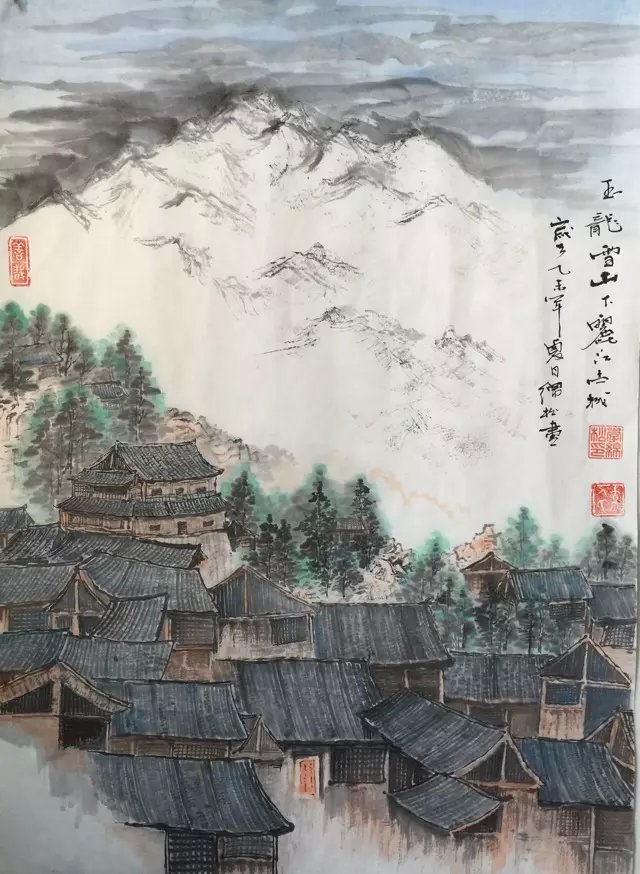 玉龍雪山下麗江古城
歲次乙未年夏日綿松畫
善哉